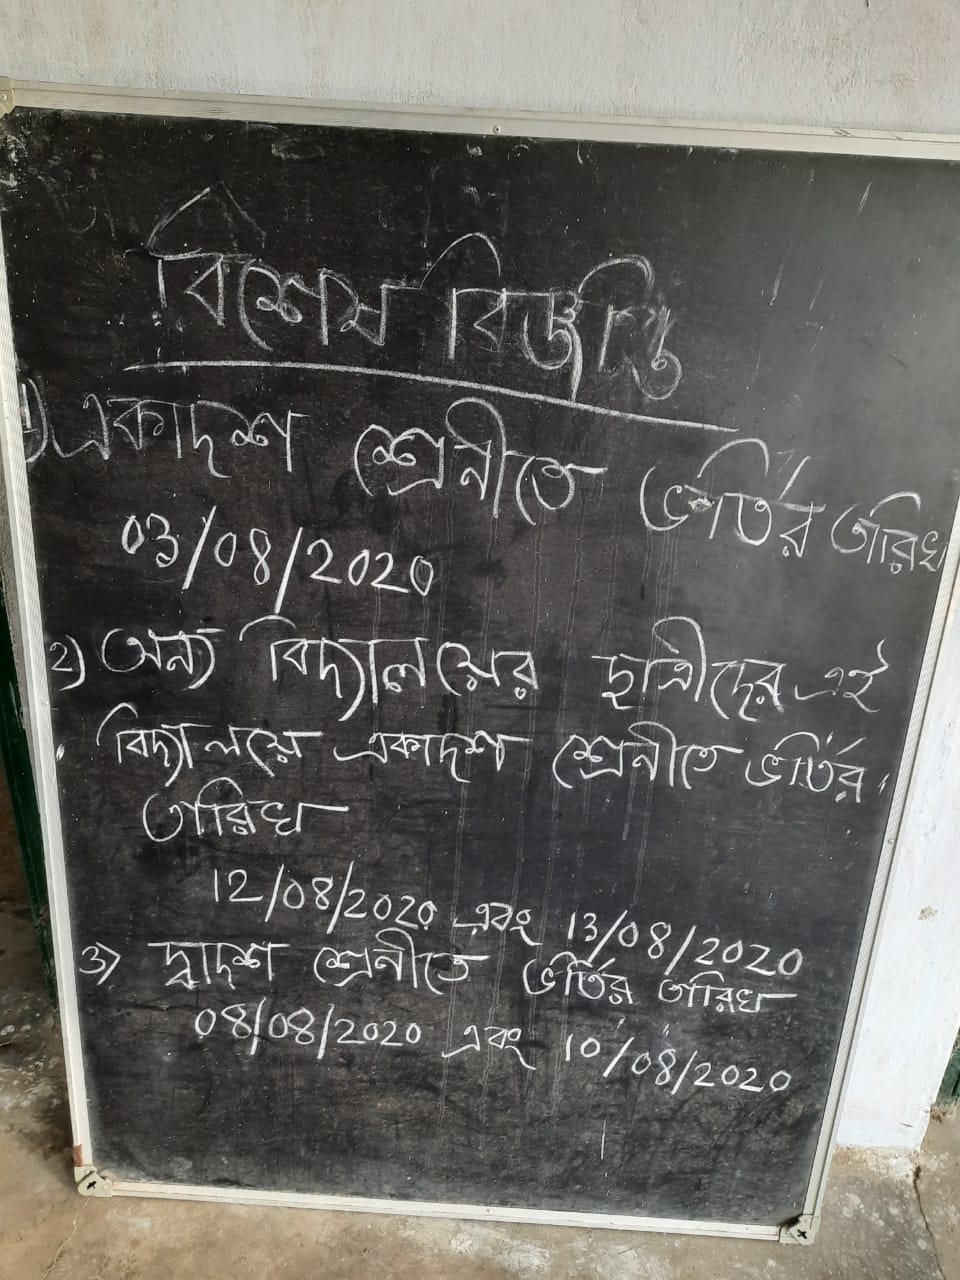 বিশেষ বিজ্ঞপ্তি
1) একাদশ শ্রেনীতে ভর্তির তারিখ
03/08/2020
2) অন্য বিদ্যালয়ের ছাত্রীদের এই
বিদ্যালয়ে একাদশ শ্রেনীতে ভর্তির
তারিখ
12/08/2020 এবং 13/08/2020
3) দ্বাদশ শ্রেনীতে ভর্তির তারিখ
08/08/2020 এবং 10/08/2020